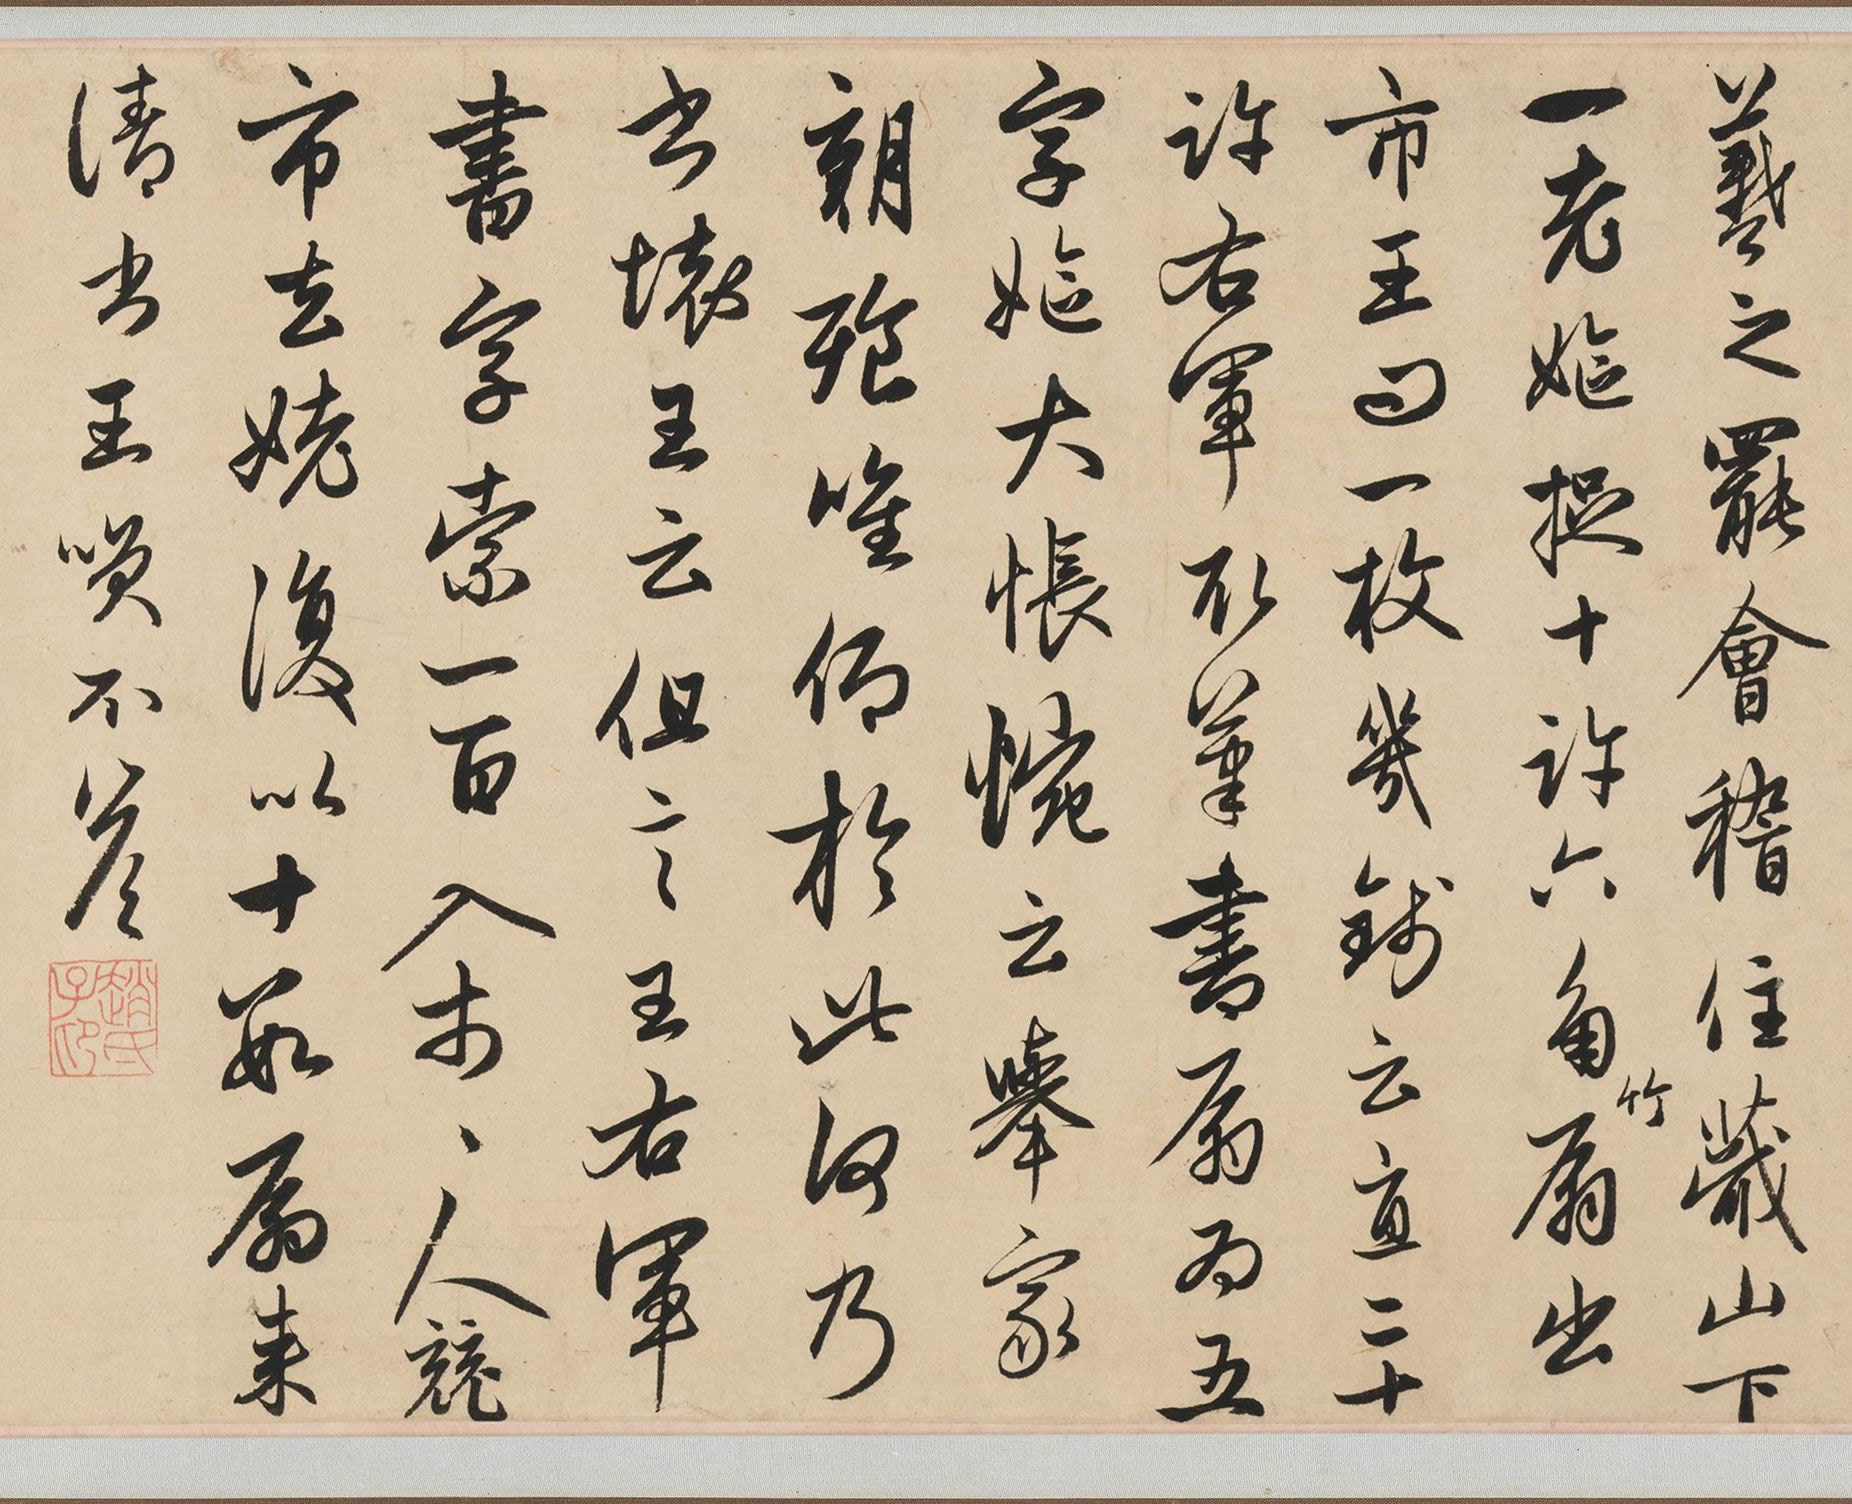 羲之罷會稽住蕺山下
一老嫗捉十許六角竹扇出
市王問一枚幾錢云直二十
許右軍取筆書扇扇為五
字嫗大悵惋云舉家
朝飡唯仰於此何乃
書壞王云但言王右軍
書字索一百入市市人競
市去姥復以十數扇來
請書王笑不答
趙氏子印